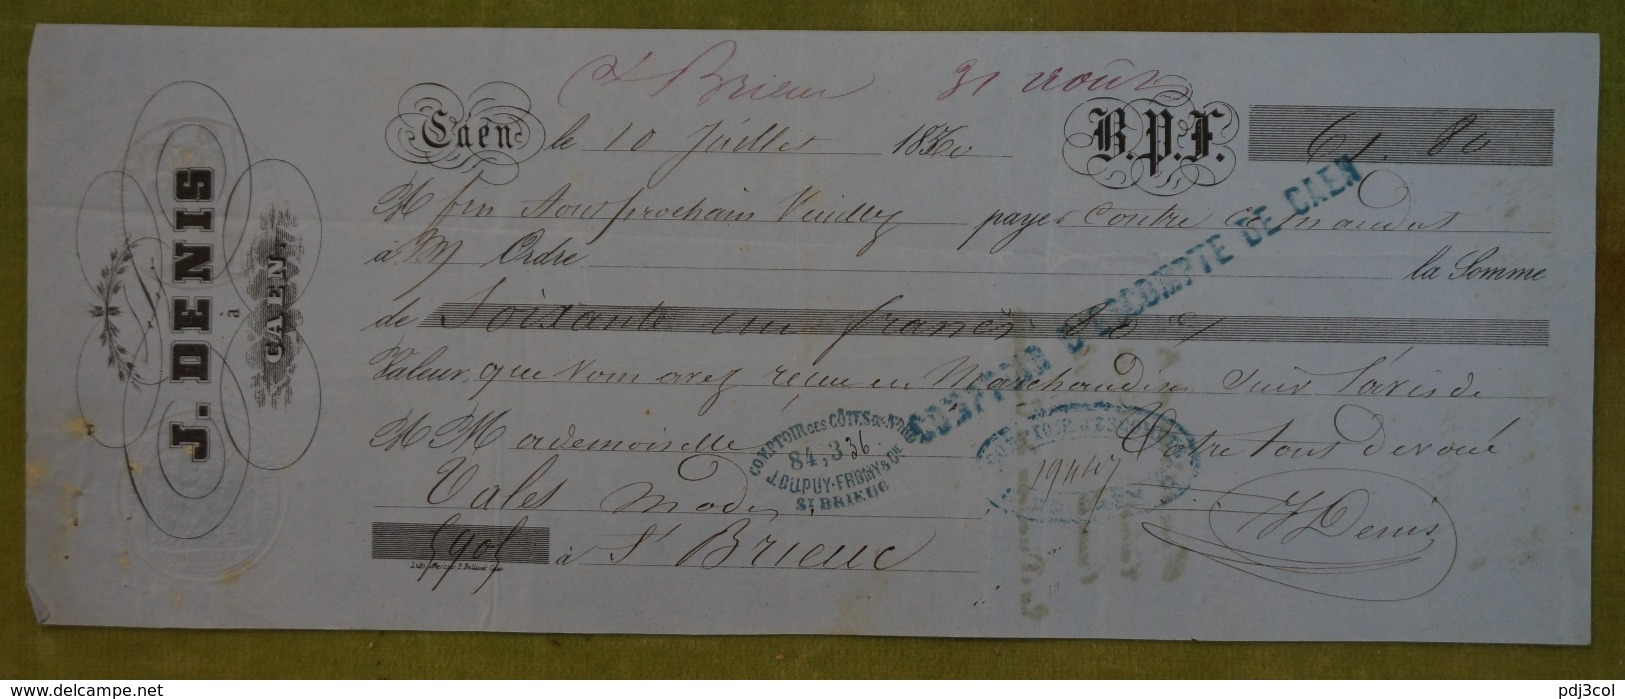 St Brieuc 31 août
Caen le 10 Juillet 18 B.P.F. 61. 80
M fin Aout prochain Veuillez payer contre ce mandat
à M Ordre la Somme
de Soixante un francs 80 c/
Valeur que Vous avez reçue en Marchandises Suiv l'avis de
M Mademoiselle Votre tout dévoué
Vales Modes
J Denis
5905 à St Brieuc
J. DENIS
à
CAEN.
COMPTOIR D'ESCOMPTE DE CAEN
COMPTOIR DES CÔTES-DU-NORD
84,336
J. DUPUY-FROMY & CIE
ST BRIEUC
COMPTOIR D'ESCOMPTE
19447
DE CAEN
https://www.delcampe.net
pdj3col